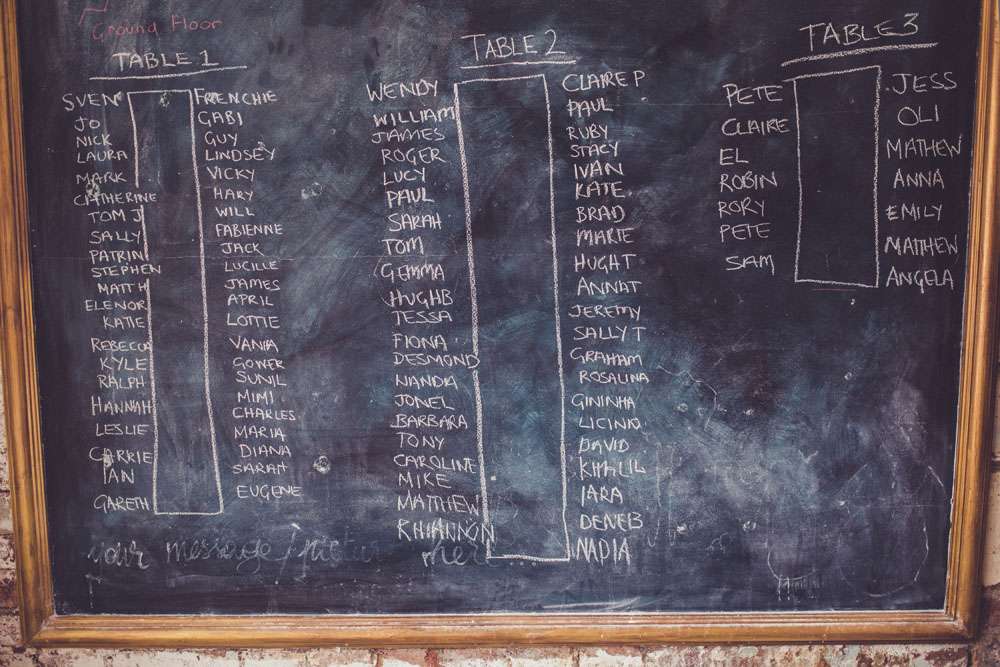 Ground Floor
TABLE 1
SVEN
JO
NICK
LAURA
MARK
CATHERINE
TOM J
SALLY
PATRIN
STEPHEN
MATT H
ELENOR
KATIE
REBECCA
KYLE
RALPH
HANNAH
LESLIE
CARRIE
IAN
GARETH
FRENCHIE
GABI
GUY
LINDSEY
VICKY
HARY
WILL
FABIENNE
JACK
LUCILLE
JAMES
APRIL
LOTTIE
VANIA
GOWER
SUNIL
MIMI
CHARLES
MARIA
DIANA
SARAH
EUGENE
TABLE 2
WENDY
WILLIAM
JAMES
ROGER
LUCY
PAUL
SARAH
TOM
GEMMA
HUGHB
TESSA
FIONA
DESMOND
NANDIA
JONEL
BARBARA
TONY
CAROLINE
MIKE
MATTHEW
RHIANNON
CLAIRE P
PAUL
RUBY
STACY
IVAN
KATE
BRAD
MARIE
HUGHT
ANNAT
JEREMY
SALLY T
GRAHAM
ROSALINA
GININHA
LICINIO
DAVID
KHALIL
IARA
DENEB
NADIA
TABLE 3
PETE
CLAIRE
EL
ROBIN
RORY
PETE
SAM
JESS
OLI
MATHEW
ANNA
EMILY
MATTHEW
ANGELA
your message/pictu here